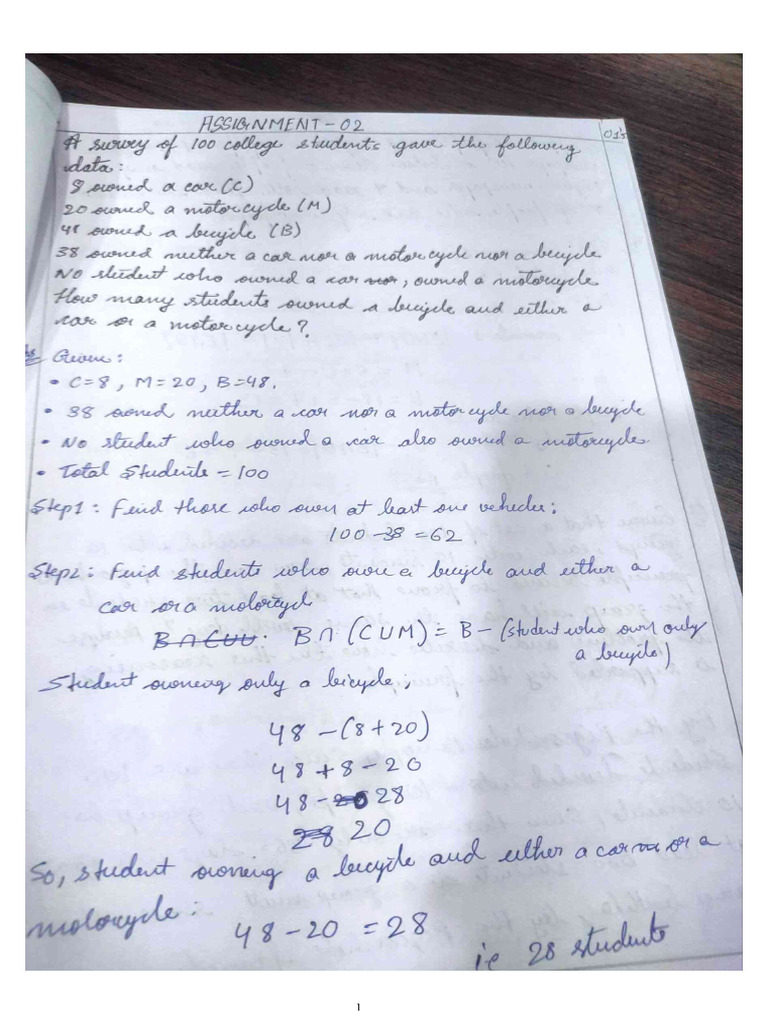 ASSIGNMENT-02
A survey of 100 college students gave the following
data:
8 owned a car (C)
20 owned a motorcycle (M)
48 owned a bicycle (B)
38 owned neither a car nor a motorcycle nor a bicycle
No student who owned a car nor, owned a motorcycle
How many students owned a bicycle and either a
car or a motorcycle?
Given:
• C=8, M=20, B=48.
• 38 owned neither a car nor a motorcycle nor a bicycle
• No student who owned a car also owned a motorcycle.
• Total Students = 100
Step1: Find those who own at least one vehicles;
100-38 = 62.
Step2: Find students who own a bicycle and either a
car or a motorcycle
B∩CUU. B∩(CUM) = B - (student who own only
a bicycle)
Student owning only a bicycle,
48 - (8+20)
48 + 8 - 20
48 - 28
28 20
So, student owning a bicycle and either a car or a
motorcycle:
48 - 20 = 28
ie 28 students
1